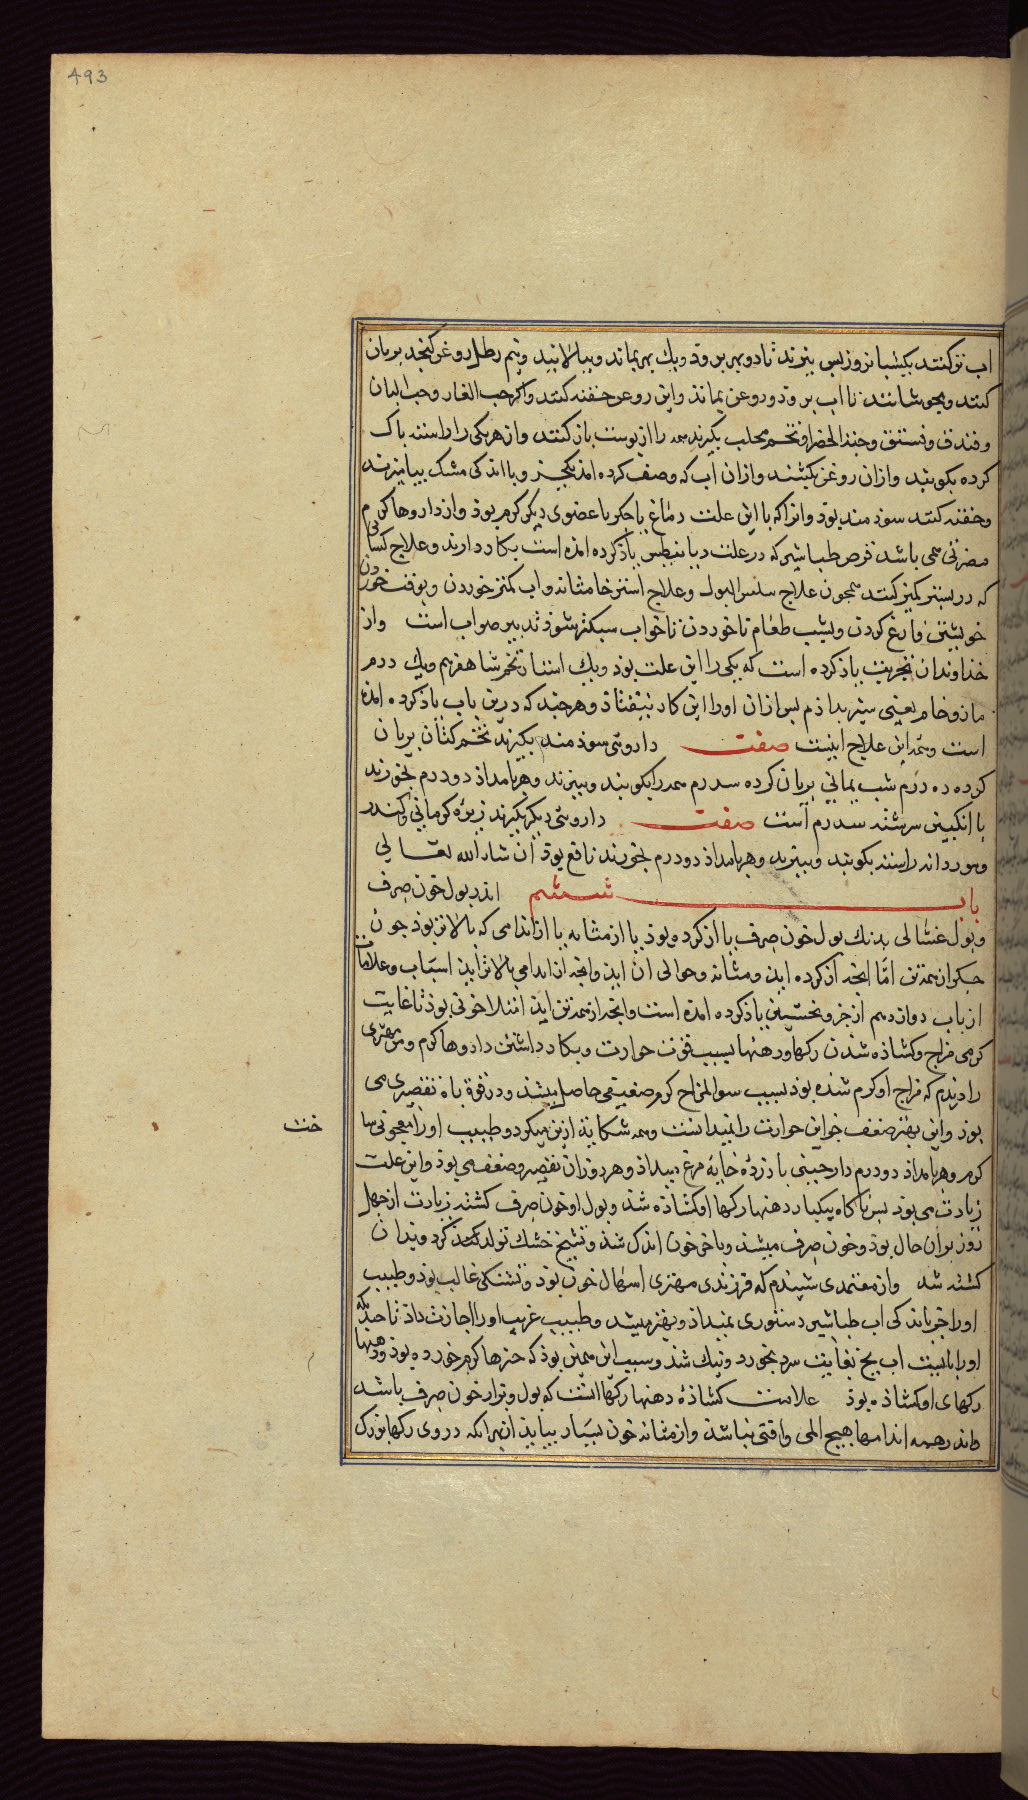 493
اب تر کنند یکشبانروز بس ببزند تا دو بهر برود ویك بهر بماند وببالانید ونیم رطل روغن کنجد بریان
کنند وبجوشانند تا اب برود وروغن بماند واین روغن حقنه کنند واکر حب الغار وحب البان
وفندق وفستق وحبة الخضرا وتخم محلب بکیرند همه را از بوست باز کنند واز هر یکی راراسته باک
کرده بکوبند وازان روغن بکشند وازان اب که وصف کرده امذ بکجز وبا اندکی مشک بیامیزند
وحقنه کنند سوذمند بوذ وانرا که با این علت دماغ یا جکر یا عضوی دیکر کرم بوذ واز داروها کرم
مضرتی همی باشد قرص طباشیر که در علت دیابیطس یاذ کرده امذه است بکار دارند وعلاج کسانی
که در بستر کمیز کنند همجون علاج سلس البول وعلاج استرخا مثانه واب کمتر خوردن وبوقت خوردن
خویشتن فارغ کردن وبشب طعام ناخوردن تا خواب سبکتر شوذ تدبیر صواب است واز
خذاوندان تجربت یاذ کرده است که یکی را این علت بوذ ویك استار تخم شاهفرم ویك درم
مازو خام یعنی سبز بداذم بس ازان اورا این کار نیفتاذ وهر جند که درین باب یاذ کرده امذه
است وتمه این علاج اینست صفت داروئی سوذمند بکیرند تخم کتان بریان
کرده ده درم شب یمانی بریان کرده سدرم همه را بکوبند وببیزند وهر بامداذ دو درم بخورند
با انکبین سرشته سدرم است صفت داروئی دیکر بکیرند زیره کرمانی وکندر
ومورد دانه راسته بکوبند وببیزند وهر بامداذ دو درم بخورند نافع بوذ ان شاء الله تعالی
باب ششم اندر بول خون صرف
وبول غسالی بدنك بول خون صرف یا از کرده بوذ یا از مثانه یا از اندامی که بالاتر بوذ جون
جکر از همه تن امّا انجه از کرده ایذ ومثانه وحوالی ان ایذ وانجه از اندامی بالاتر ایذ اسباب وعلامات
از باب دوازدهم از جزو نخستین یاذ کرده امذه است وانجه از همه تن ایذ امتلا خونی بوذ تا غایت
کرمی مزاج وکشاذه شدن رکها ودهنها بسبب قوت حرارت وبکار داشتن داروها کرم ومن مهتری
را دیذم که مزاج او کرم شذه بوذ بسبب سوالمزاج کرم ضعیفی حاصل میشذ ودر قوة باه تقصیری می
بوذ واین بهتر ضعف خواین حرارت را نمیدانست وهمه شکایة ازین میکرد وطبیب اورا معجونی ساخت
کرم وهر بامداذ دو درم دارجینی با زرده خایه مرغ میداذ وهر روزان تقصیر وضعف می بوذ واین علت
زیادت می بوذ بس ناکاه بیکبار دهنها رکها او کشاذه شذ وبول او خون صرف کشته زیادت از جهل
روز بران حال بوذ وخون صرف میشذ وباخر خون اندک شذ وتشنج خشك تولذ کرد وبدان
کشته شد واز معتمدی شنیدم که فرزندی مهتری اسهال خون بوذ وتشنکی غالب بوذ وطبیب
اورا جز باندکی اب طباشیر دستوری نمیداذ وبهتر نمیشد وطبیبی غریب اورا اجازت داذ تا جندانکه
اورا بایست اب یخ بغایت سرد بخورد ونیك شذ وسبب این همین بوذ که جیزها کرم خورده بوذ ودهنها
رکهای او کشاذه بوذ علامت کشاذه دهنها رکها انست که بول وبراز خون صرف باشد
واندر همه اندامها هیج المی وافتی نباشد واز مثانه خون بسیار بیایذ از بهر انکه در وی رکها بزرک
خت